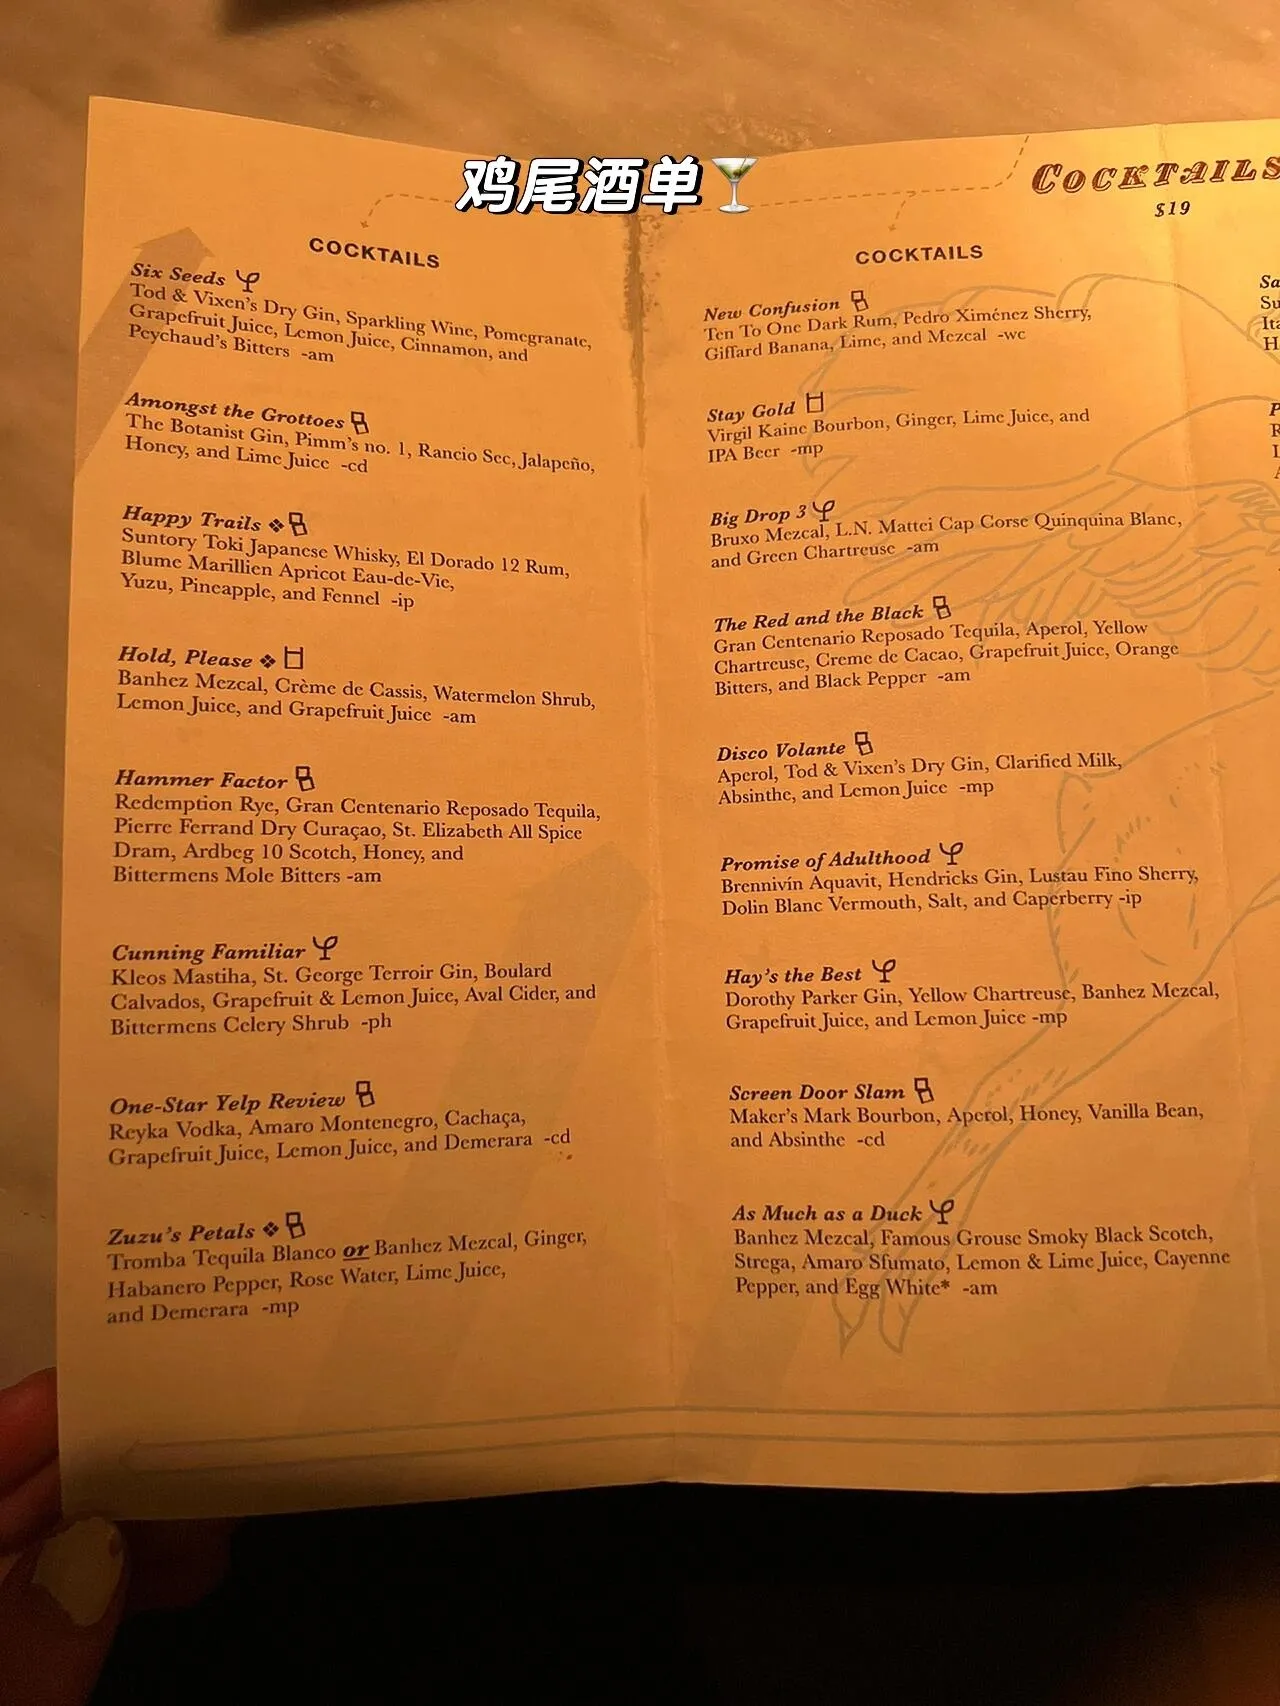 鸡尾酒单🍸
COCKTAILS
$19
COCKTAILS
Six Seeds
Tod & Vixen's Dry Gin, Sparkling Wine, Pomegranate,
Grapefruit Juice, Lemon Juice, Cinnamon, and
Peychaud's Bitters -am
Amongst the Grottoes
The Botanist Gin, Pimm's no. 1, Rancio Sec, Jalapeño,
Honey, and Lime Juice -cd
Happy Trails ❖
Suntory Toki Japanese Whisky, El Dorado 12 Rum,
Blume Marillien Apricot Eau-de-Vie,
Yuzu, Pineapple, and Fennel -ip
Hold, Please ❖
Banhez Mezcal, Crème de Cassis, Watermelon Shrub,
Lemon Juice, and Grapefruit Juice -am
Hammer Factor
Redemption Rye, Gran Centenario Reposado Tequila,
Pierre Ferrand Dry Curaçao, St. Elizabeth All Spice
Dram, Ardbeg 10 Scotch, Honey, and
Bittermens Mole Bitters -am
Cunning Familiar
Kleos Mastiha, St. George Terroir Gin, Boulard
Calvados, Grapefruit & Lemon Juice, Aval Cider, and
Bittermens Celery Shrub -ph
One-Star Yelp Review
Reyka Vodka, Amaro Montenegro, Cachaça,
Grapefruit Juice, Lemon Juice, and Demerara -cd
Zuzu's Petals ❖
Tromba Tequila Blanco or Banhez Mezcal, Ginger,
Habanero Pepper, Rose Water, Lime Juice,
and Demerara -mp
COCKTAILS
New Confusion
Ten To One Dark Rum, Pedro Ximénez Sherry,
Giffard Banana, Lime, and Mezcal -wc
Stay Gold
Virgil Kaine Bourbon, Ginger, Lime Juice, and
IPA Beer -mp
Big Drop 3
Bruxo Mezcal, L.N. Mattei Cap Corse Quinquina Blanc,
and Green Chartreuse -am
The Red and the Black
Gran Centenario Reposado Tequila, Aperol, Yellow
Chartreuse, Creme de Cacao, Grapefruit Juice, Orange
Bitters, and Black Pepper -am
Disco Volante
Aperol, Tod & Vixen's Dry Gin, Clarified Milk,
Absinthe, and Lemon Juice -mp
Promise of Adulthood
Brennivín Aquavit, Hendricks Gin, Lustau Fino Sherry,
Dolin Blanc Vermouth, Salt, and Caperberry -ip
Hay's the Best
Dorothy Parker Gin, Yellow Chartreuse, Banhez Mezcal,
Grapefruit Juice, and Lemon Juice -mp
Screen Door Slam
Maker's Mark Bourbon, Aperol, Honey, Vanilla Bean,
and Absinthe -cd
As Much as a Duck
Banhez Mezcal, Famous Grouse Smoky Black Scotch,
Strega, Amaro Sfumato, Lemon & Lime Juice, Cayenne
Pepper, and Egg White* -am